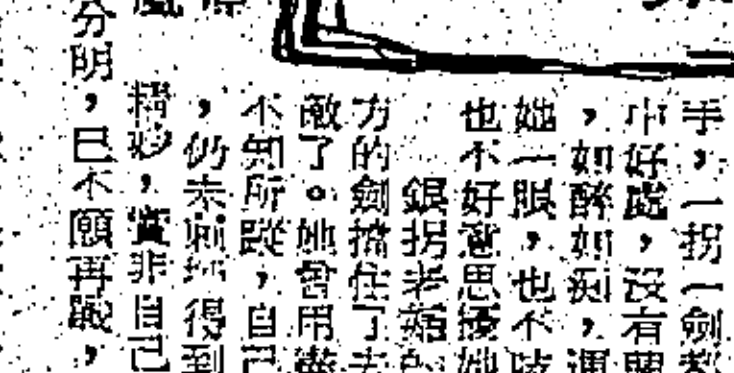 手，一拐一劍都
中好處，沒有
，如醉如癡，運
她一眼，也不吱
也不好意思擾她
銀拐老嫗的
力的劍擋住了去
敵了。她曾用盡
不知所蹤，自己
，仍未 得到
精妙，實非自己
分明，已不願再戰，